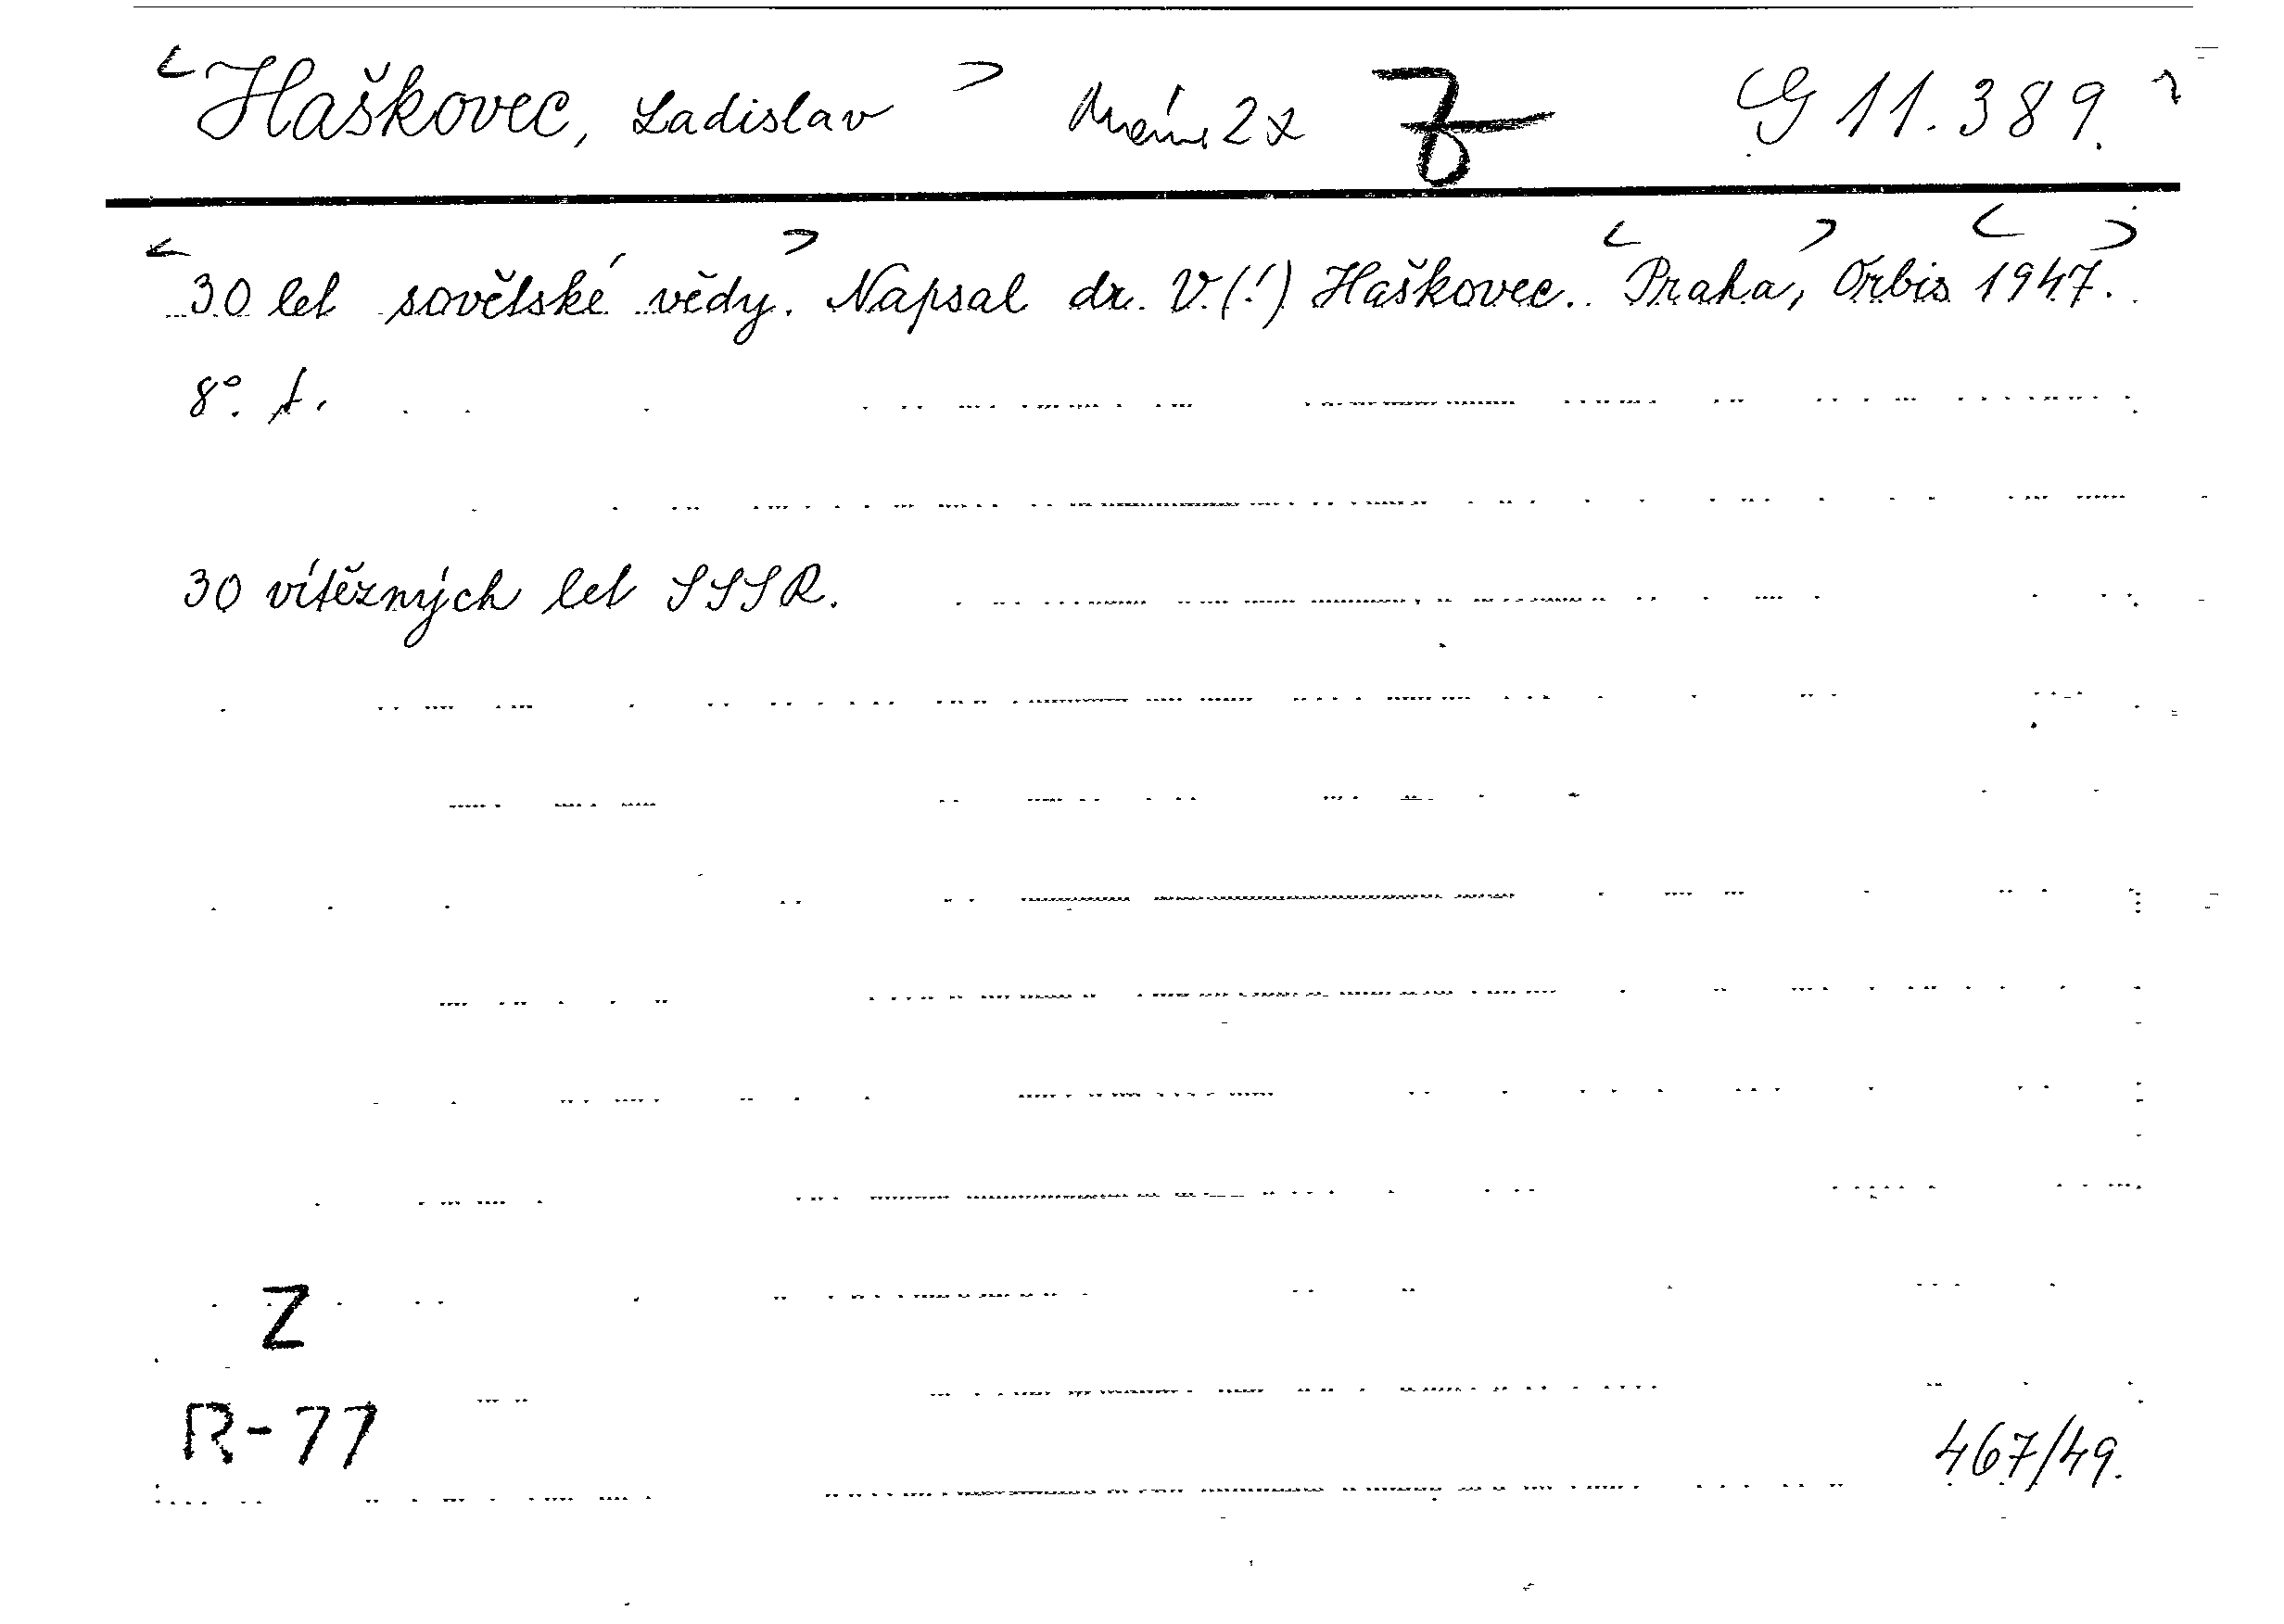 <Haškovec, Ladislav> Máme 2x G 11.389.
<30 let sovětské vědy.> Napsal dr. V.(!) Haškovec. <Praha,> Orbis <1947.>
8°.
30 vítězných let SSSR.
Z
R-77
467/49.